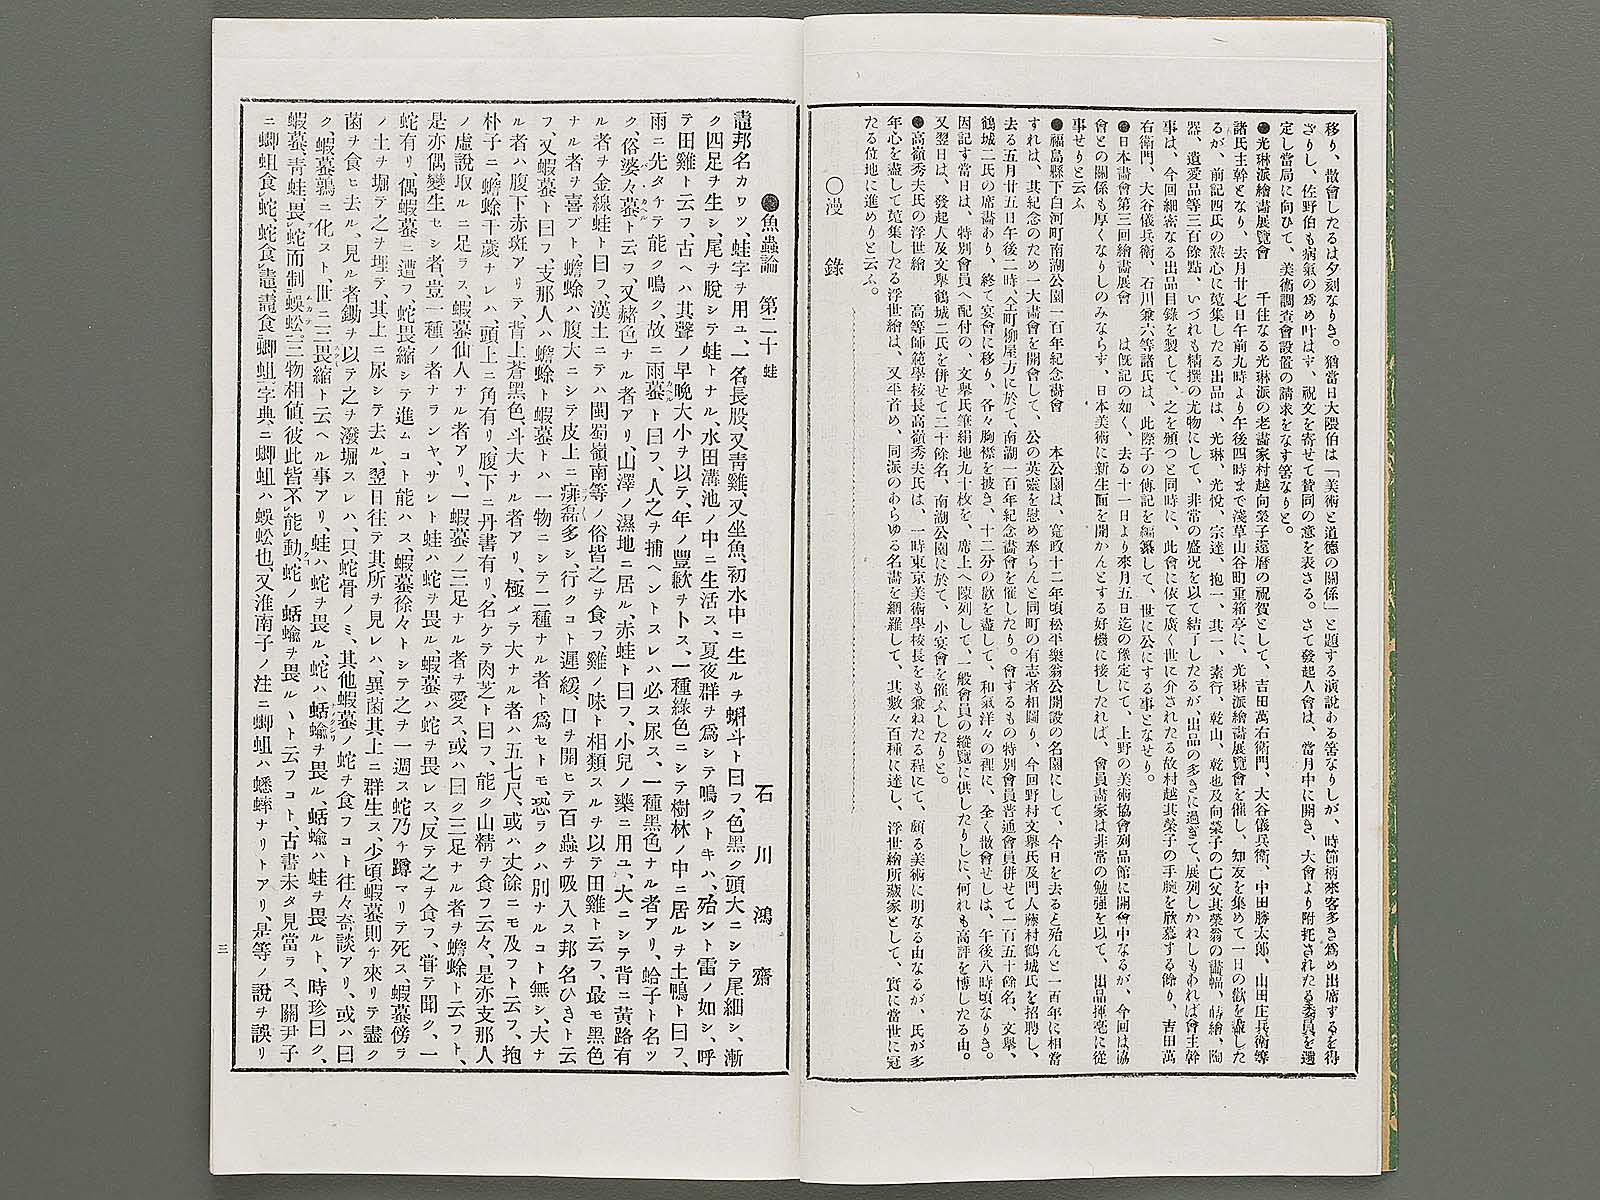 移り、散會したるは夕刻なりき。猶當日大隈伯は「美術と道德の關係」と題する演說ある筈なりしが、時節柄來客多き爲め出席するを得
ざりし、佐野伯も病氣の爲め叶はず、祝文を寄せて贊同の意を表さる。さて發起人會は、當月中に開き、大會より附托されたる委員を選
定し當局に向ひて、美術調査會設置の請求をなす筈なりと。
●光琳派繪畵展覽會　千住なる光琳派の老畵家村越向榮子還曆の祝賀として、吉田萬右衛門、大谷儀兵衛、中田勝太郎、山田庄兵衛等
諸氏主幹となり、去月廿七日午前九時より午後四時まで淺草山谷町重箱亭に、光琳派繪畵展覽會を催し、知友を集めて一日の歡を盡した
るが、前記四氏の熱心に蒐集したる出品は、光琳、光悅、宗達、抱一、其一、素行、乾山、乾也及向榮子の亡父其榮翁の畵幅、蒔繪、陶
器、遺愛品等三百餘點、いづれも精撰の尤物にして、非常の盛况を以て結了したるが、出品の多きに過ぎて、展列しかねしもあれば會主幹
事は、今回細密なる出品目錄を製して、之を頒つと同時に、此會に依て廣く世に介されたる故村越其榮子の手腕を欽慕する餘り、吉田萬
右衛門、大谷儀兵衛、石川兼六等諸氏は、此際子の傳記を編纂して、世に公にする事となせり。
●日本畵會第三回繪畵展會　は旣記の如く、去る十一日より來月五日迄の豫定にて、上野の美術協會列品館に開會中なるが、今回は協
會との關係も厚くなりしのみならず、日本美術に新生面を開かんとする好機に接したれば、會員畵家は非常の勉强を以て、出品揮毫に從
事せりと云ふ
●福島縣下白河町南湖公園一百年紀念畵會　本公園は、寬政十二年頃松平樂翁公開設の名園にして、今日を去ると殆んと一百年に相當
すれは、其紀念のため一大畵會を開會して、公の英靈を慰め奉らんと同町の有志者相圖り、今回野村文擧氏及門人藤村鶴城氏を招聘し、
去る五月廿五日午後二時、仝町柳屋方に於て、南湖一百年紀念畵會を催したり。會するもの特別會員普通會員併せて一百五十餘名、文擧、
鶴城二氏の席畵あり、終て宴會に移り、各々胸襟を披き、十二分の歡を盡して、和氣洋々の裡に、全く散會せしは、午後八時頃なりき。
因記す當日は、特別會員へ配付の、文擧氏筆絹地九十枚を、席上へ陳列して、一般會員の縱覽に供したりしに、何れも高評を博したる由。
又翌日は、發起人及文擧鶴城二氏を併せて二十餘名、南湖公園に於て、小宴會を催ふしたりと。
●高嶺秀夫氏の浮世繪　高等師範學校長高嶺秀夫氏は、一時東京美術學校長をも兼ねたる程にて、頗る美術に明なる由なるが、氏が多
年心を盡して蒐集したる浮世繪は、又平首め、同派のあらゆる名畵を網羅して、其數々百種に達し、浮世繪所藏家として、實に當世に冠
たる位地に進めりと云ふ。
○漫錄
●魚蟲論　第二十　蛙
石川鴻齋
鼃邦名カワヅ、蛙字ヲ用ユ、一名長股、又靑雞、又坐魚、初水中ニ生ルヲ蝌斗ト曰フ、色黑ク頭大ニシテ尾細シ、漸
ク四足ヲ生シ、尾ヲ脫シテ蛙トナル、水田溝池ノ中ニ生活ス、夏夜群ヲ爲シテ鳴クトキハ、殆ント雷ノ如シ、呼
テ田雞ト云フ、古ヘハ其聲ノ早晩大小ヲ以テ、年ノ豐歉ヲ卜ス、一種綠色ニシテ樹林ノ中ニ居ルヲ土鴨ト曰フ、
雨ニ先タチテ能ク鳴ク、故ニ雨蟇ト曰フ、人之ヲ捕ヘントスレハ必ス尿ス、一種黑色ナル者アリ、蛤子ト名ツ
ク、俗婆々蟇ト云フ、又赭色ナル者アリ、山澤ノ濕地ニ居ル、赤蛙ト曰フ、小兒ノ藥ニ用ユ、大ニシテ背ニ黃路有
ル者ヲ金線蛙ト曰フ、漢土ニテハ閩蜀嶺南等ノ俗皆之ヲ食フ、雞ノ味ト相類スルヲ以テ田雞ト云フ、最モ黑色
ナル者ヲ喜ブト、蟾蜍ハ腹大ニシテ皮上ニ痱磊多シ、行クコト遲緩、口ヲ開ヒテ百蟲ヲ吸入ス邦名ひきト云
フ、又蝦蟇ト曰フ、支那人ハ蟾蜍ト蝦蟇トハ一物ニシテ二種ナル者ト爲セトモ、恐ラクハ別ナルコト無シ、大ナ
ル者ハ腹下赤斑アリテ、背上蒼黑色、斗大ナル者アリ、極メテ大ナル者ハ五七尺、或ハ丈餘ニモ及フト云フ、抱
朴子ニ、蟾蜍千歲ナレハ、頭上ニ角有リ、腹下ニ丹書有リ、名ケテ肉芝ト曰フ、能ク山精ヲ食フ云々、是亦支那人
ノ虛說取ルニ足ラス、蝦蟇仙人ナル者アリ、一蝦蟇ノ三足ナル者ヲ愛ス、或ハ曰ク三足ナル者ヲ蟾蜍ト云フト、
是亦偶變生セシ者、豈一種ノ者ナランヤ、サレト蛙ハ蛇ヲ畏ル、蝦蟇ハ蛇ヲ畏レス、反テ之ヲ食フ、甞テ聞ク、一
蛇有リ、偶蝦蟇ニ遭フ、蛇畏縮シテ進ムコト能ハス、蝦蟇徐々トシテ之ヲ一週ス蛇乃チ蹲マリテ死ス、蝦蟇傍ラ
ノ土ヲ堀テ之ヲ埋テ、其上ニ尿シテ去ル、翌日往テ其所ヲ見レハ、異菌其上ニ群生ス、少頃蝦蟇則チ來リテ盡ク
菌ヲ食ヒ去ル、見ル者鋤ヲ以テ之ヲ潑堀スレハ、只蛇骨ノミ、其他蝦蟇ノ蛇ヲ食フコト往々奇談アリ、或ハ曰
ク、蝦蟇鶉ニ化スト、世ニ三畏縮ト云ヘル事アリ、蛙ハ蛇ヲ畏ル、蛇ハ蛞蝓ヲ畏ル、蛞蝓ハ蛙ヲ畏ルト、時珍曰ク、
蝦蟇靑蛙畏蛇而制蜈蚣、三物相値、彼此皆不能動、蛇ノ蛞蝓ヲ畏ルヽト云フコト、古書未タ見當ラス、關尹子
ニ蝍蛆食蛇、蛇食鼃、鼃食蝍蛆字典ニ蝍蛆ハ蜈蚣也、又淮南子ノ注ニ蝍蛆ハ蟋蟀ナリトアリ、是等ノ說ヲ誤リ
三